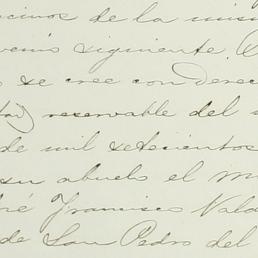 ocinos de la mism
venio siguiente.
s se cree con derec
tar) reservable del
de mil setecientos
su abuelo el M
sé Francisco Vald
de San Pedro del